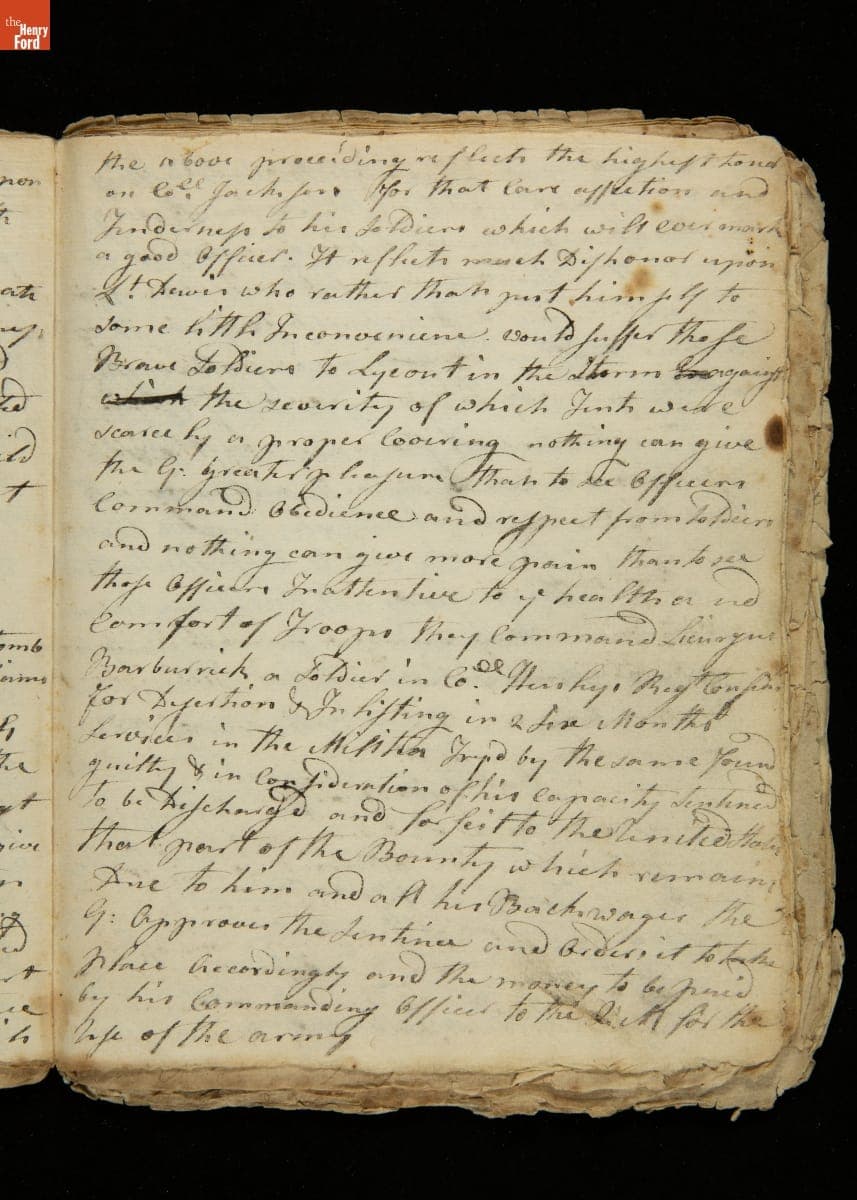 the Henry Ford
the above proceiding reflects the highest honor
on Coll. Jackson for that Care affection and
Tenderness to his Soldiers which will ever mark
a good Officer. It reflects much Dishonor upon
Lt. Dewis who rather than put himself to
some little Inconvenience would suffer those
Brave Soldiers to Lye out in the Storm against
which the severity of which Tents were
scarcely a proper Covering nothing can give
the G: greater pleasure than to see Officers
Command Obedience and respect from Soldiers
and nothing can give more pain than to see
those Officers Inattentive to ye health and
Comfort of Troops they Command
Barburrick a Soldier in Coll. Regt
for Desertion & Inlisting in 2 Six Months
Services in the Militia Tryd by the same found
guilty & in Consideration of his capacity Sentined
to be Discharg'd and forfeit to the United States
that part of the Bounty which remains
Due to him and all his Back wages the
G: Approves the Sentince and Orders it to take
place Accordingly and the money to be paid
by his Commanding Officer to the for the
Use of the army
pon
ess
omb
the
give